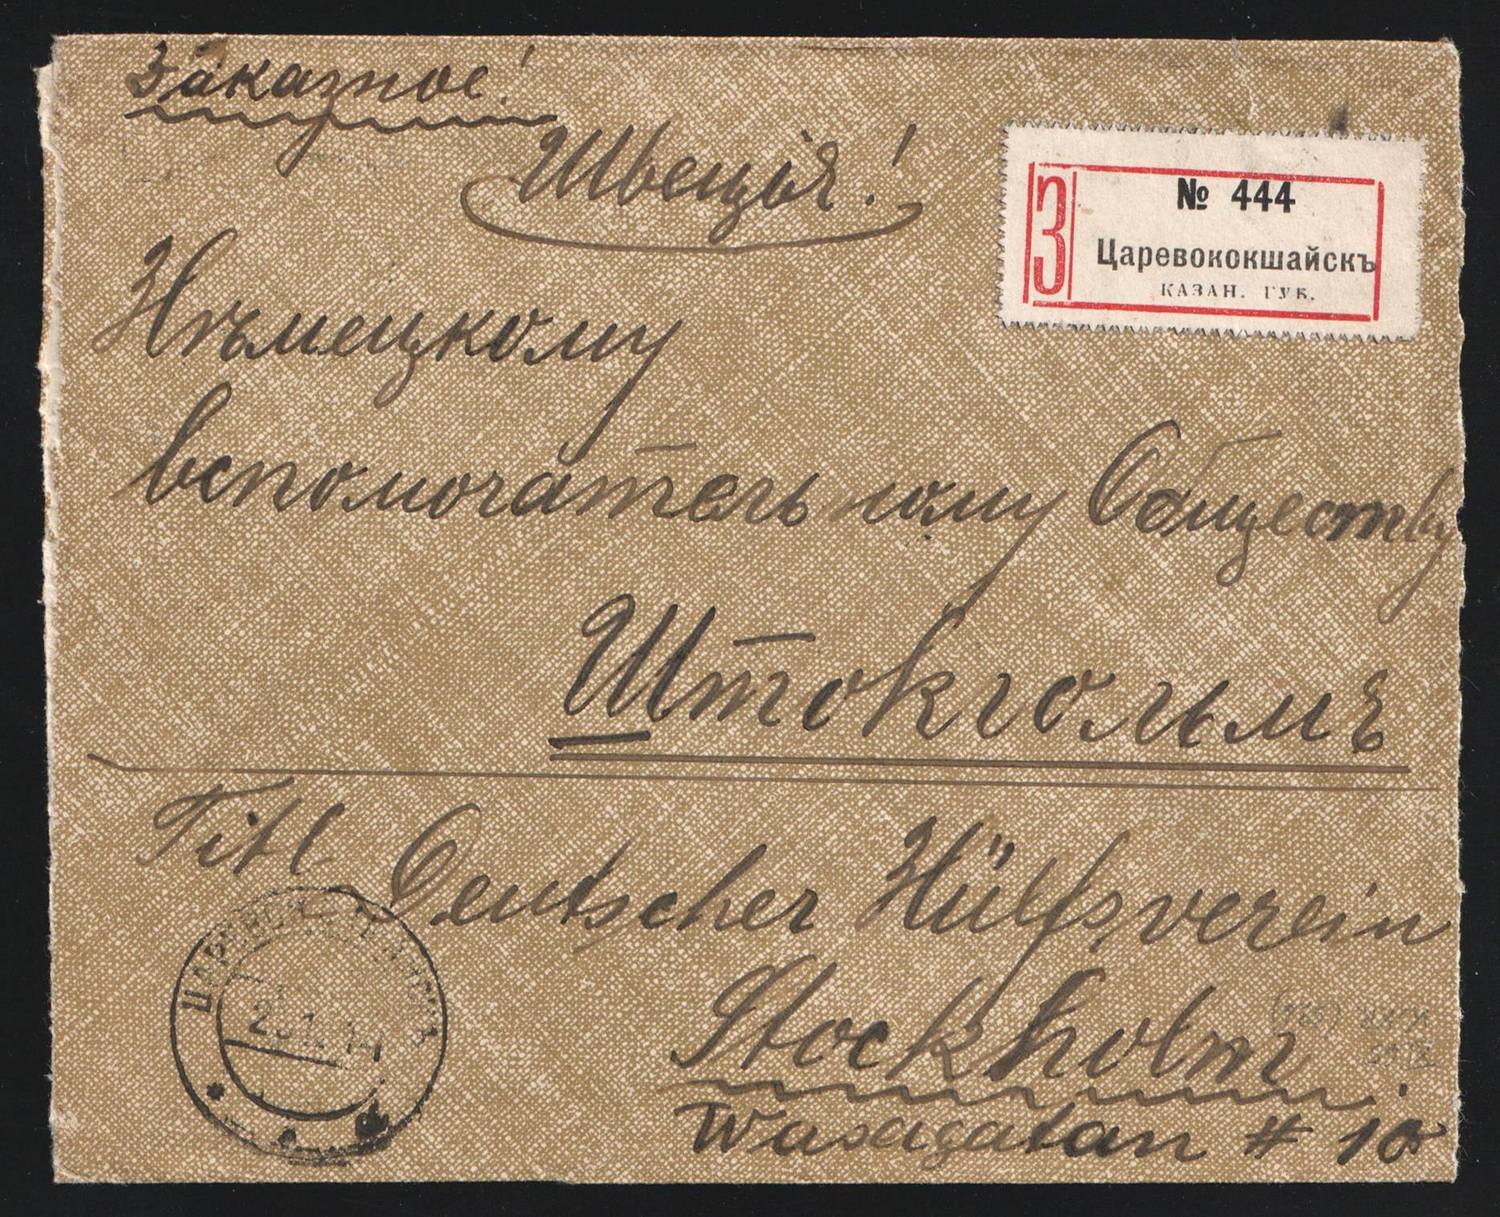 Заказное!
Швецiя!
З
№ 444
Царевококшайскъ
КАЗАН. ГУБ.
Нѣмецкому
вспомогательному Обществу
Штокгольмъ
Titl. Deutscher Hülfsverein
Stockholm
Wasagatan # 10